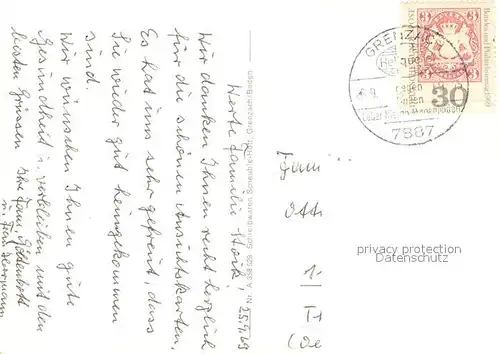 25.9.69
Werte Familie Stoik!
Wir danken Ihnen recht herzlich
für die schönen Ansichtskarten,
Es hat uns sehr gefreut, dass
Sie wieder gut heimgekommen
sind.
Wir wünschen Ihnen gute
Gesundheit u. verbleiben mit den
besten Grüssen Ihre Fam.
u. Frau Hermann
Nr. A 358 529 Schreibwaren Grenzach/Baden
GRENZACH
7887
30
Fam
Ott
1
T
(De
privacy protection
DATENSCHUTZ